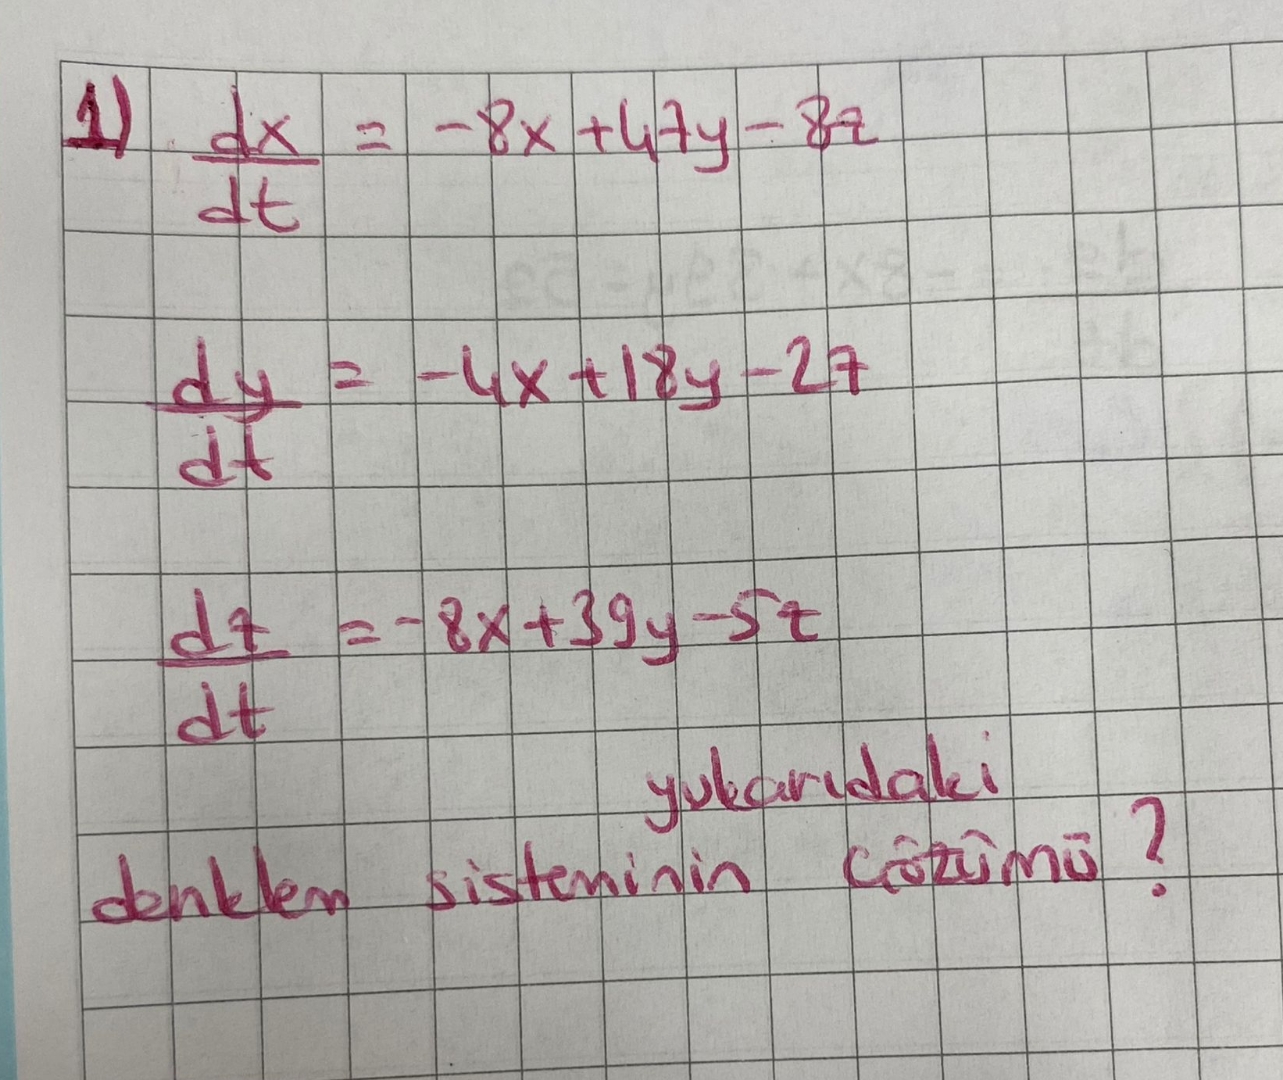 1) dx/dt = -8x+47y-8z
dy/dt = -4x+18y-2z
dz/dt = -8x+39y-5z
yukarıdaki
denklem sisteminin çözümü?